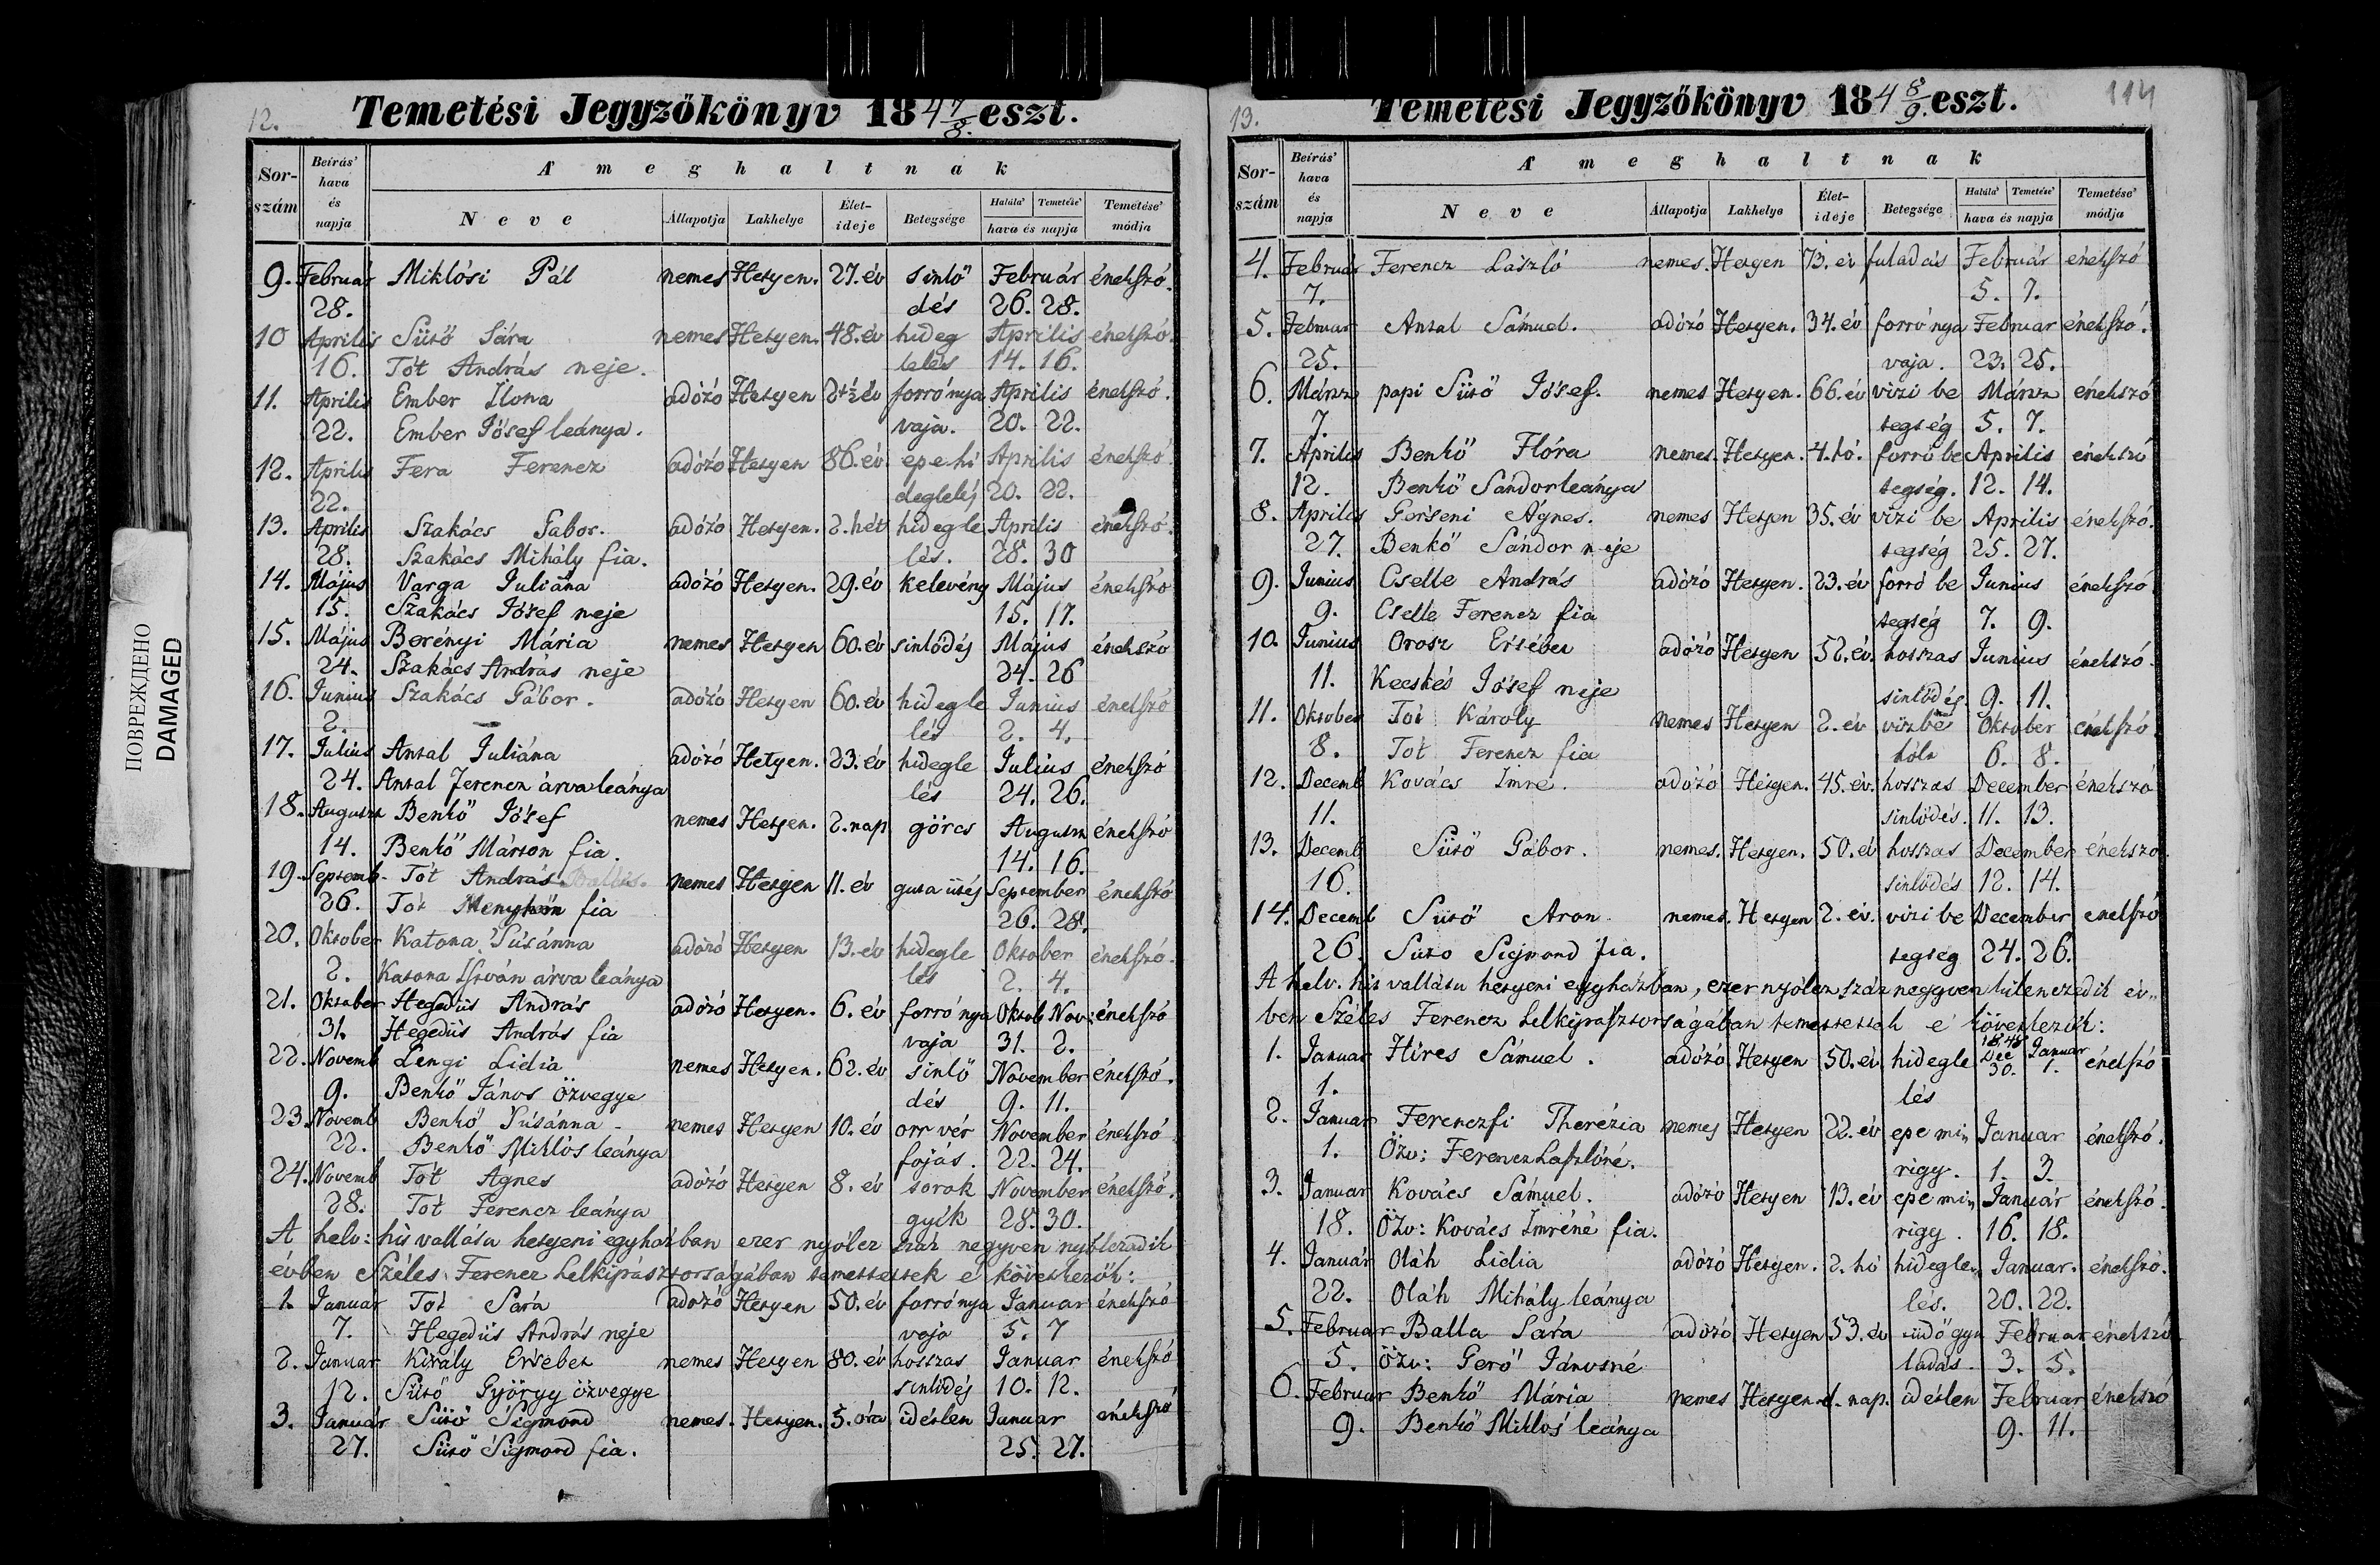 ПОВРЕЖДЕНО
DAMAGED
12.
Temetési Jegyzőkönyv 184 7/8. eszt.
Sor-szám Beírás' hava és napja A' meghaltnak
Neve Állapotja Lakhelye Élet-ideje Betegsége Halála' Temetése' hava és napja Temetése' módja
9. Február Miklósi Pál nemes Hetyen. 27. év sinlö Február énekszó.
28. dés 26. 28.
10 Aprilis Sütő Sára nemes Hetyen. 48. év hideg Aprilis énekszó.
16. Tót András neje. lelés 14. 16.
11. Aprilis Ember Ilona adózó Hetyen 2+½ év forró nya Aprilis énekszó.
22. Ember Jósef leánya. vaja. 20. 22.
12. Aprilis Fera Ferencz adózó Hetyen 86. év epe hi Aprilis énekszó.
22. deglelés 20. 22.
13. Aprilis Szakács Gabor. adózó Hetyen. 2. hét hidegle Aprilis énekszó.
28. Szakács Mihály fia. lés. 28. 30
14. Május Varga Juliána adózó Hetyen. 29. év kelevény Május énekszó
15. Szakács Jósef neje 15. 17.
15. Május Berényi Mária nemes Hetyen 60. év sinlődés Május énekszó
24. Szakács András neje 24. 26
16. Junius Szakács Gábor. adózó Hetyen 60. év hidegle Junius énekszó
2. lés 2. 4.
17. Julius Antal Juliána adózó Hetyen. 23. év hidegle Julius énekszó
24. Antal Ferencz árva leánya lés 24. 26.
18. Auguszt Benkő Jósef nemes Hetyen. 2. nap görcs Auguszt énekszó
14. Benkő Márton fia. 14. 16.
19. Septemb. Tót András nemes Hetyen 11. év guta ütés September énekszó
26. Tót Menyhért fia 26. 28.
20. Oktober Katona Súsánna adózó Hetyen 13. év hidegle Oktober énekszó.
2. Katona István árva leánya lés 2. 4.
21. Oktober Hegedüs András adózó Hetyen. 6. év forró nya Oktob Nov: énekszó
31. Hegedüs András fia vaja 31. 2.
22. Novemb Lengi Lidia nemes Hetyen. 62. év sinlö November énekszó.
9. Benkő János özvegye dés 9. 11.
23. Novemb Benkő Súsánna nemes Hetyen 10. év orr vér November énekszó
22. Benkő Miklós leánya fojás. 22. 24.
24. Novemb Tót Agnes adózó Hetyen 8. év torok November énekszó.
28. Tót Ferencz leánya gyík 28. 30.
A helv: hitvallásu hetyeni egyházban ezer nyólcz száz negyven nyólczadik
évben Széles Ferencz Lelkipásztorságában temettettek e' következők:
1. Januar Tót Sára adózó Hetyen 50. év forró nya Januar énekszó
7. Hegedüs András neje vaja 5. 7
2. Januar Király Ersébet nemes Hetyen 80. év hosszas Januar énekszó
12. Sütő György özvegye sinlődés 10. 12.
3. Januar Sütő Sigmond nemes. Hetyen. 5. óra idétlen Januar énekszó
27. Sütő Sigmond fia. 25. 27.
13.
Temetési Jegyzőkönyv 184 8/9. eszt.
114
Sor-szám Beírás' hava és napja A' meghaltnak
Neve Állapotja Lakhelye Élet-ideje Betegsége Halála' Temetése' hava és napja Temetése' módja
4. Február Ferencz László nemes. Hetyen 73. év fuladás Február énekszó
7. 5. 7.
5. Februar Antal Sámuel. adózó Hetyen. 34. év forró nya Februar énekszó.
25. vaja. 23. 25.
6. Márcz papi Sütő Jósef. nemes Hetyen. 66. év vizi be Márcz énekszó
7. tegség 5. 7.
7. Aprilis Benkő Flóra nemes. Hetyen. 4. hó. forró be Aprilis énekszó
12. Benkő Sándor leánya tegség. 12. 14.
8. Aprilis Gerseni Ágnes. nemes Hetyen 35. év vizi be Aprilis énekszó.
27. Benkő Sándor neje tegség 25. 27.
9. Junius Cselle András adózó Hetyen. 23. év forró be Junius énekszó.
9. Cselle Ferencz fia tegség 7. 9.
10. Junius Orosz Ersébet adózó Hetyen 52. év. hosszas Junius énekszó.
11. Kecskés Jósef neje sinlődés 9. 11.
11. Oktober Tót Károly nemes Hetyen 2. év vizbe Oktober énekszó.
8. Tót Ferencz fia hólt 6. 8.
12. Decemb Kovács Imre. adózó Hetyen. 45. év. hosszas December énekszó
11. sinlődés. 11. 13.
13. Decemb Sütő Gábor. nemes. Hetyen. 50. év hosszas December énekszó.
16. sinlődés 12. 14.
14. Decemb Sütő Aron nemes. Hetyen 2. év. vizi be December énekszó
26. Süto Sigmond fia. tegség 24. 26.
A helv. hitvallásu hetyeni egyházban, ezer nyólcz száz neggyven kilenczedik év„
ben Széles Ferencz Lelkipásztorságában temettettek e' következők:
1. Januar Híres Sámuel. adózó Hetyen 50. év hidegle 1848 Dec 30. Januar 1. énekszó
1. lés
2. Januar Ferenczfi Therézia nemes Hetyen 22. év epe min Januar énekszó.
1. Özv: Ferencz Lászlóné. rigy. 1. 3.
3. Januar Kovács Sámuel. adózó Hetyen 13. év epe min Januar énekszó.
18. Özv: Kovács Imréné fia. rigy. 16. 18.
4. Januar Oláh Lidia adózó Hetyen. 2. hó hidegle„ Januar. énekszó.
22. Oláh Mihály leánya lés. 20. 22.
5. Februar Balla Sára adózó Hetyen 53. év tüdő gyu Februar énekszó
5. Özv: Gerő Jánosné ladás. 3. 5.
6. Februar Benkő Mária nemes Hetyen 1. nap. idétlen Februar énekszó
9. Benkő Miklós leánya 9. 11.